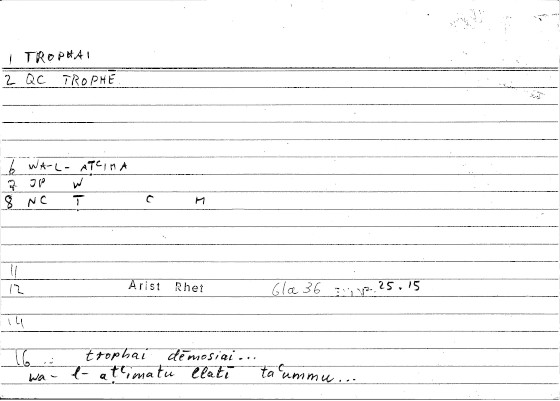 1 TROPHAI
2 QC TROPHĒ
6 WA-L- AṬʿIMA
7 JP W
8 NC Ṭ ʿ M
11
12 Arist Rhet 61a36 25.15
14
16 trophai dēmosiai...
wa- l- aṭʿimatu llatī taʿummu...